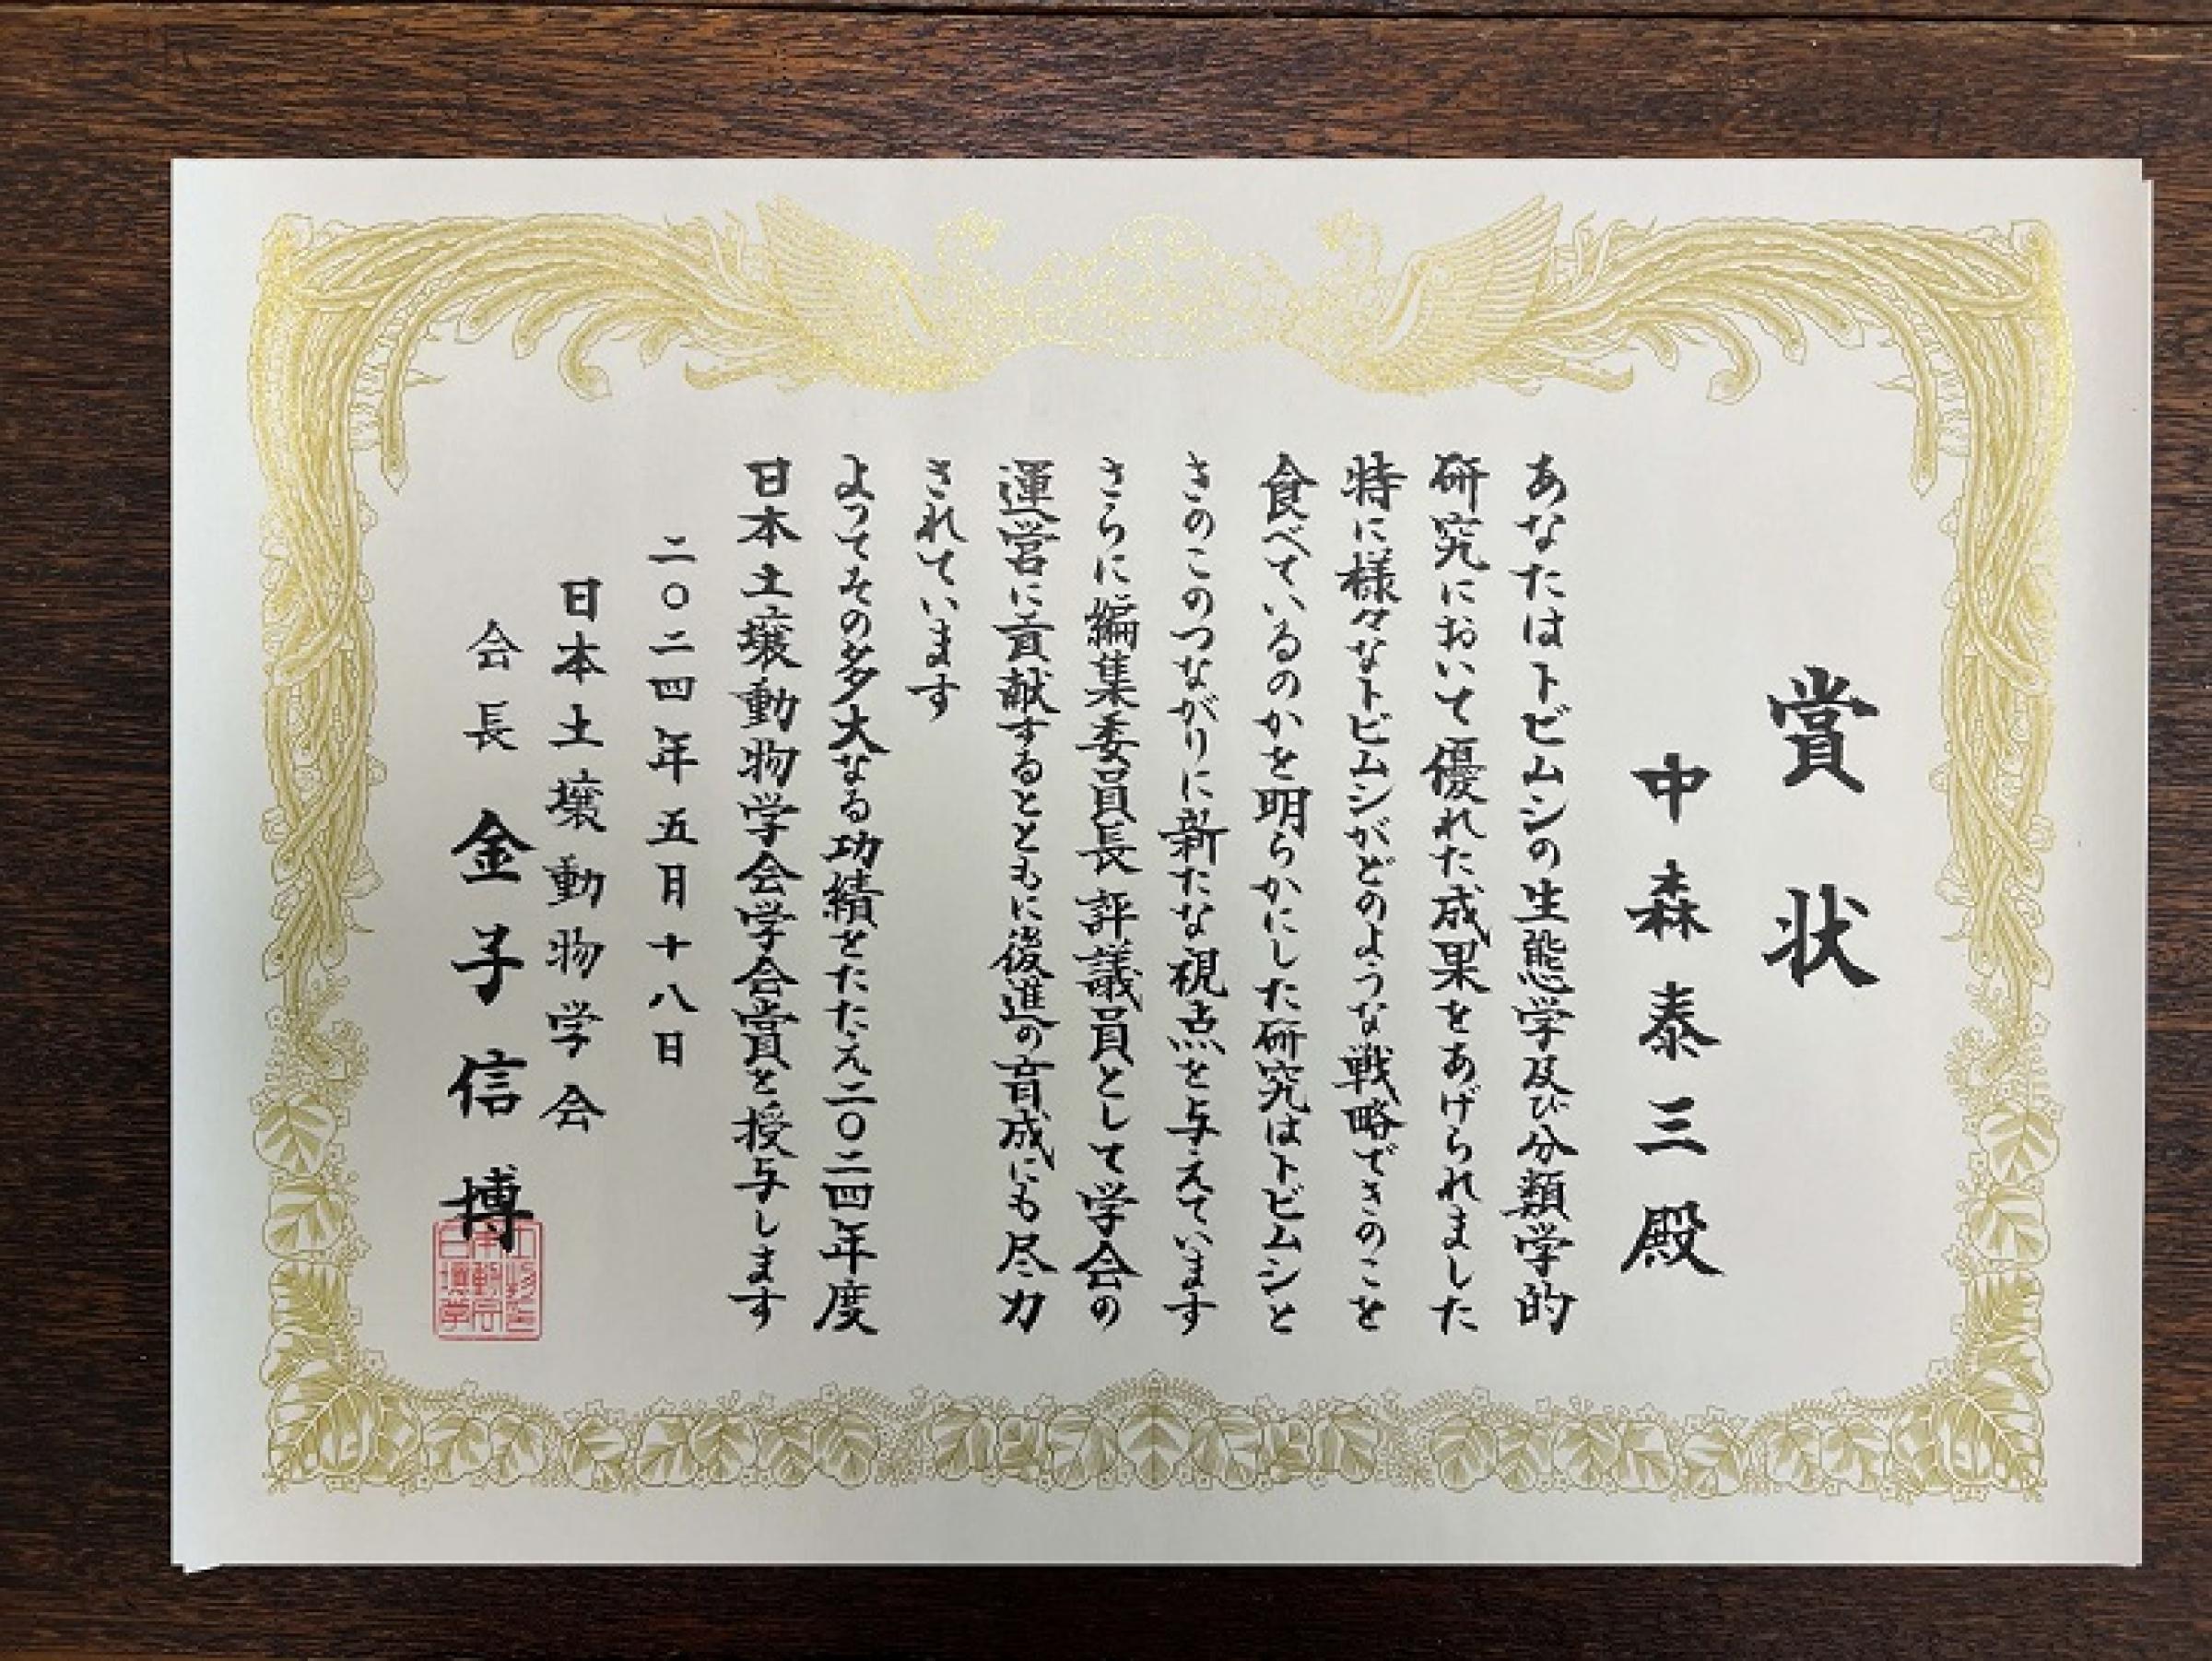 賞状
中森泰三殿
あなたはトビムシの生態学及び分類学的
研究において優れた成果をあげられました
特に様々なトビムシがどのような戦略できのこを
食べているのかを明らかにした研究はトビムシと
きのこのつながりに新たな視点を与えています
さらに編集委員長 評議員として学会の
運営に貢献するとともに後進の育成にも尽力
されています
よってその多大なる功績をたたえ二〇二四年度
日本土壌動物学会学会賞を授与します
二〇二四年五月十八日
日本土壌動物学会
会長 金子信博